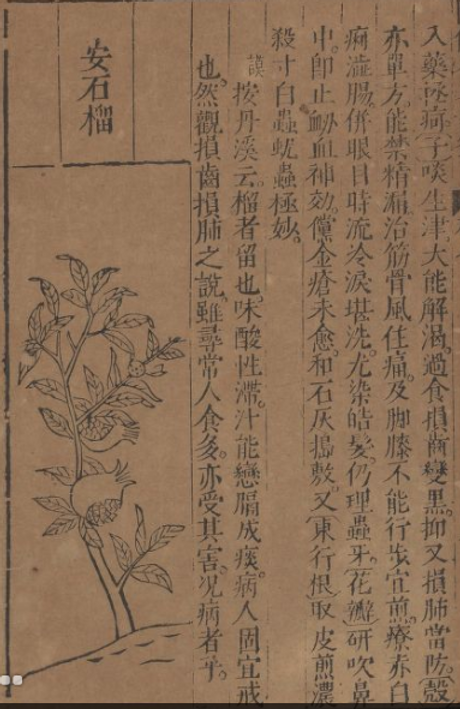 入藥極竒(子)啖生津。大能解渴。過食損齒變黑。抑又損肺當防。(殼)
亦單方。能禁精漏。治筋骨風住痛。及脚膝不能行步宜煎。療赤白
痢澁腸。併眼目時流冷淚堪洗。尤染皓髮。仍理蟲牙。(花瓣)研吹鼻
中。卽止衂血神效。儻金瘡未愈。和石灰搗敷。又(東行根)取皮煎濃
殺寸白蟲蚘蟲極妙。
謨按丹溪云。榴者留也。味酸性滯。汁能戀膈成痰。病人固宜戒
也。然觀損齒損肺之說。雖尋常人食多。亦受其害。况病者乎。
安石榴